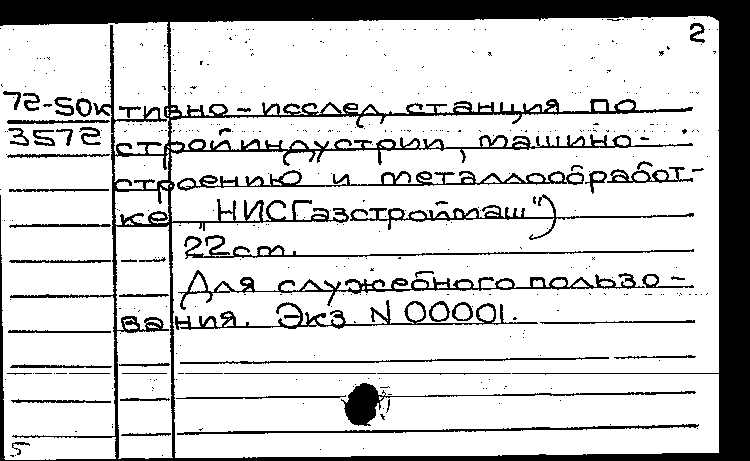 2
72-50к тивно-исслед. станция по
3572 стройиндустрии, машино-
строению и металлообработ-
ке „НИСГазстроймаш")
22 cm.
Для служебного пользо-
вания. Экз. N 00001.
5